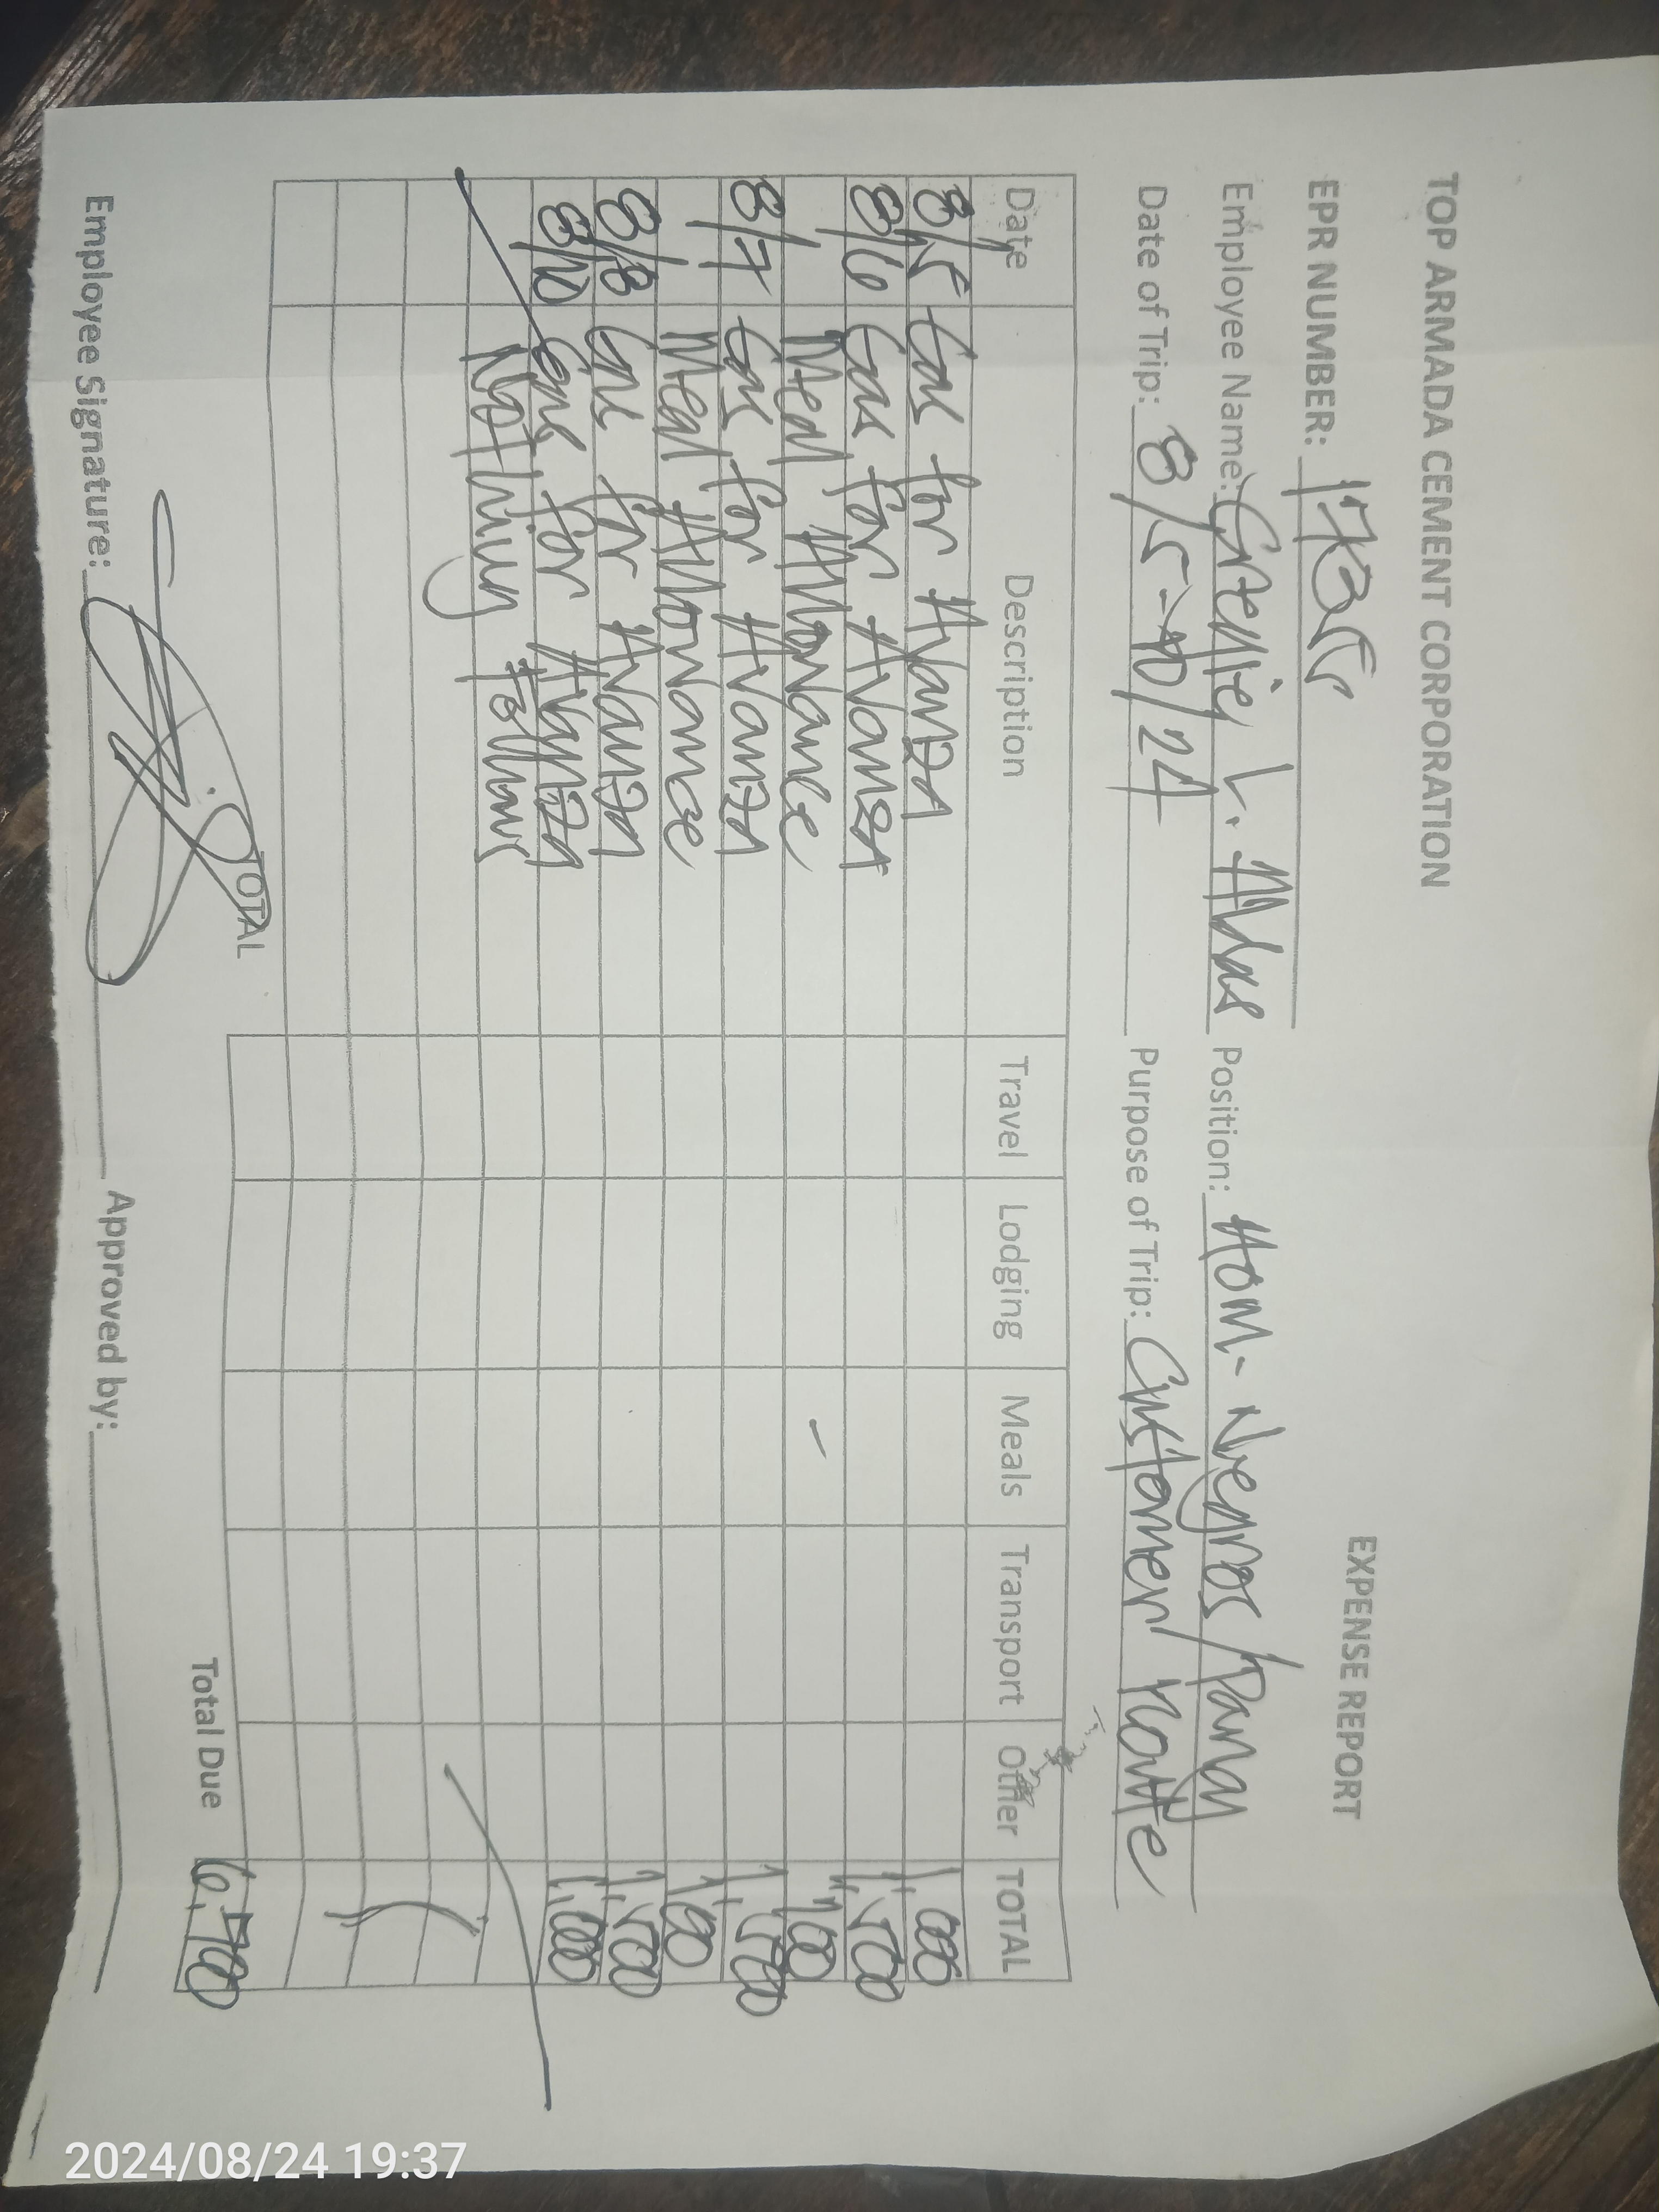 TOP ARMADA CEMENT CORPORATION
EXPENSE REPORT
EPR NUMBER:
Employee Name: L. Position: Negros/Panay
Date of Trip: 8/5-10/24 Purpose of Trip: Customer route
Date Description Travel Lodging Meals Transport Other TOTAL
8/5 Gas for Avanza 1,000
8/6 Gas for Avanza 1,500
Meal Allowance 100
8/7 Gas for Avanza 1,500
Meal Allowance 100
8/8 Gas for Avanza 1,500
8/10 Gas for Avanza 1,000
Nothing Follows
TOTAL
Total Due 6,700
Employee Signature: Approved by:
2024/08/24 19:37